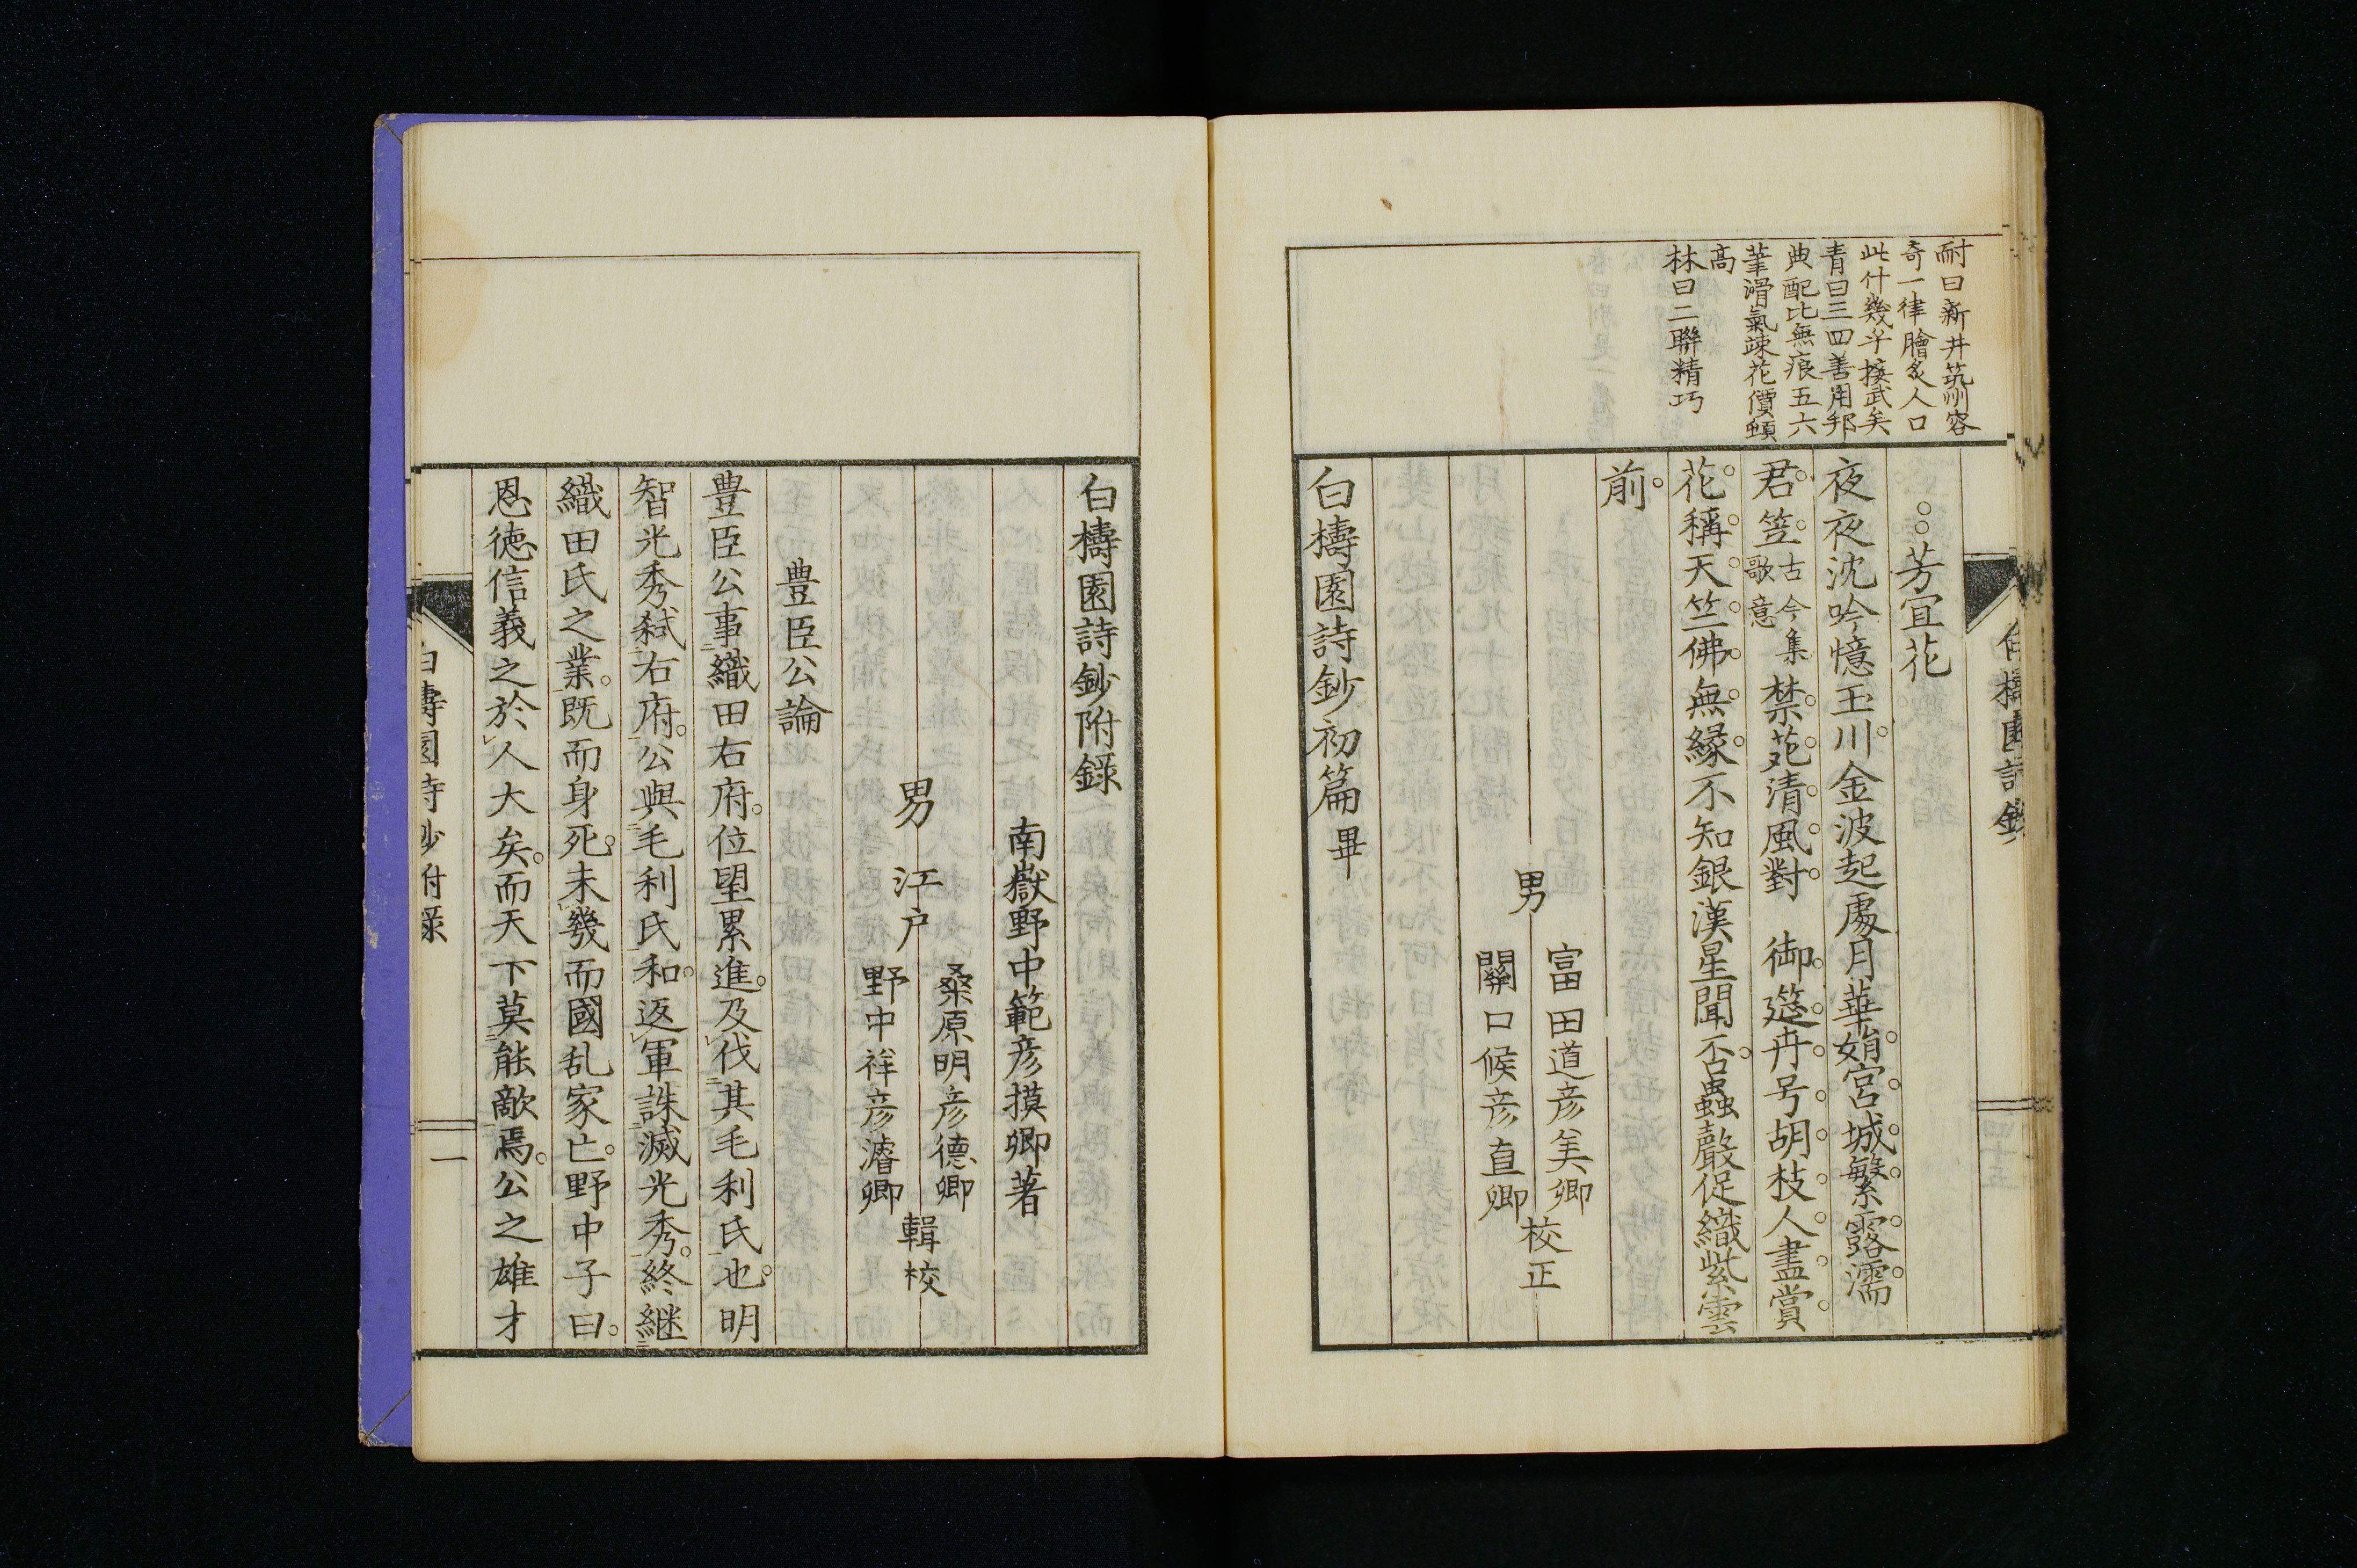 耐曰新井筑州容
奇一律膾炙人口
此什幾乎接武矣
青曰三四善用邦
典配比無痕五六
筆滑氣疎花價頓
高
林曰二聯精巧
芳宜花
夜夜沈吟憶玉川金波起處月華娟宮城繁露濡
君笠古今集歌意禁苑清風對 御筵冉号胡枝人盡賞
花稱天竺佛無緣不知銀漢星聞否蟲聲促織紫雲
前
富田道彦美卿
男
關口候彦直卿
校正
白檮園詩鈔初篇畢
白檮園詩鈔
四十五
白檮園詩鈔附錄
南嶽野中範彦摸卿著
桑原明彦德卿
男 江户
野中祥彦濬卿
輯校
豊臣公論
豊臣公事織田右府位望累進及伐其毛利氏也明
智光秀弑右府公與毛利氏和返軍誅滅光秀終継
織田氏之業既而身死未幾而國乱家亡野中子曰
恩德信義之於人大矣而天下莫能敵焉公之雄才
白檮園詩鈔附録
一